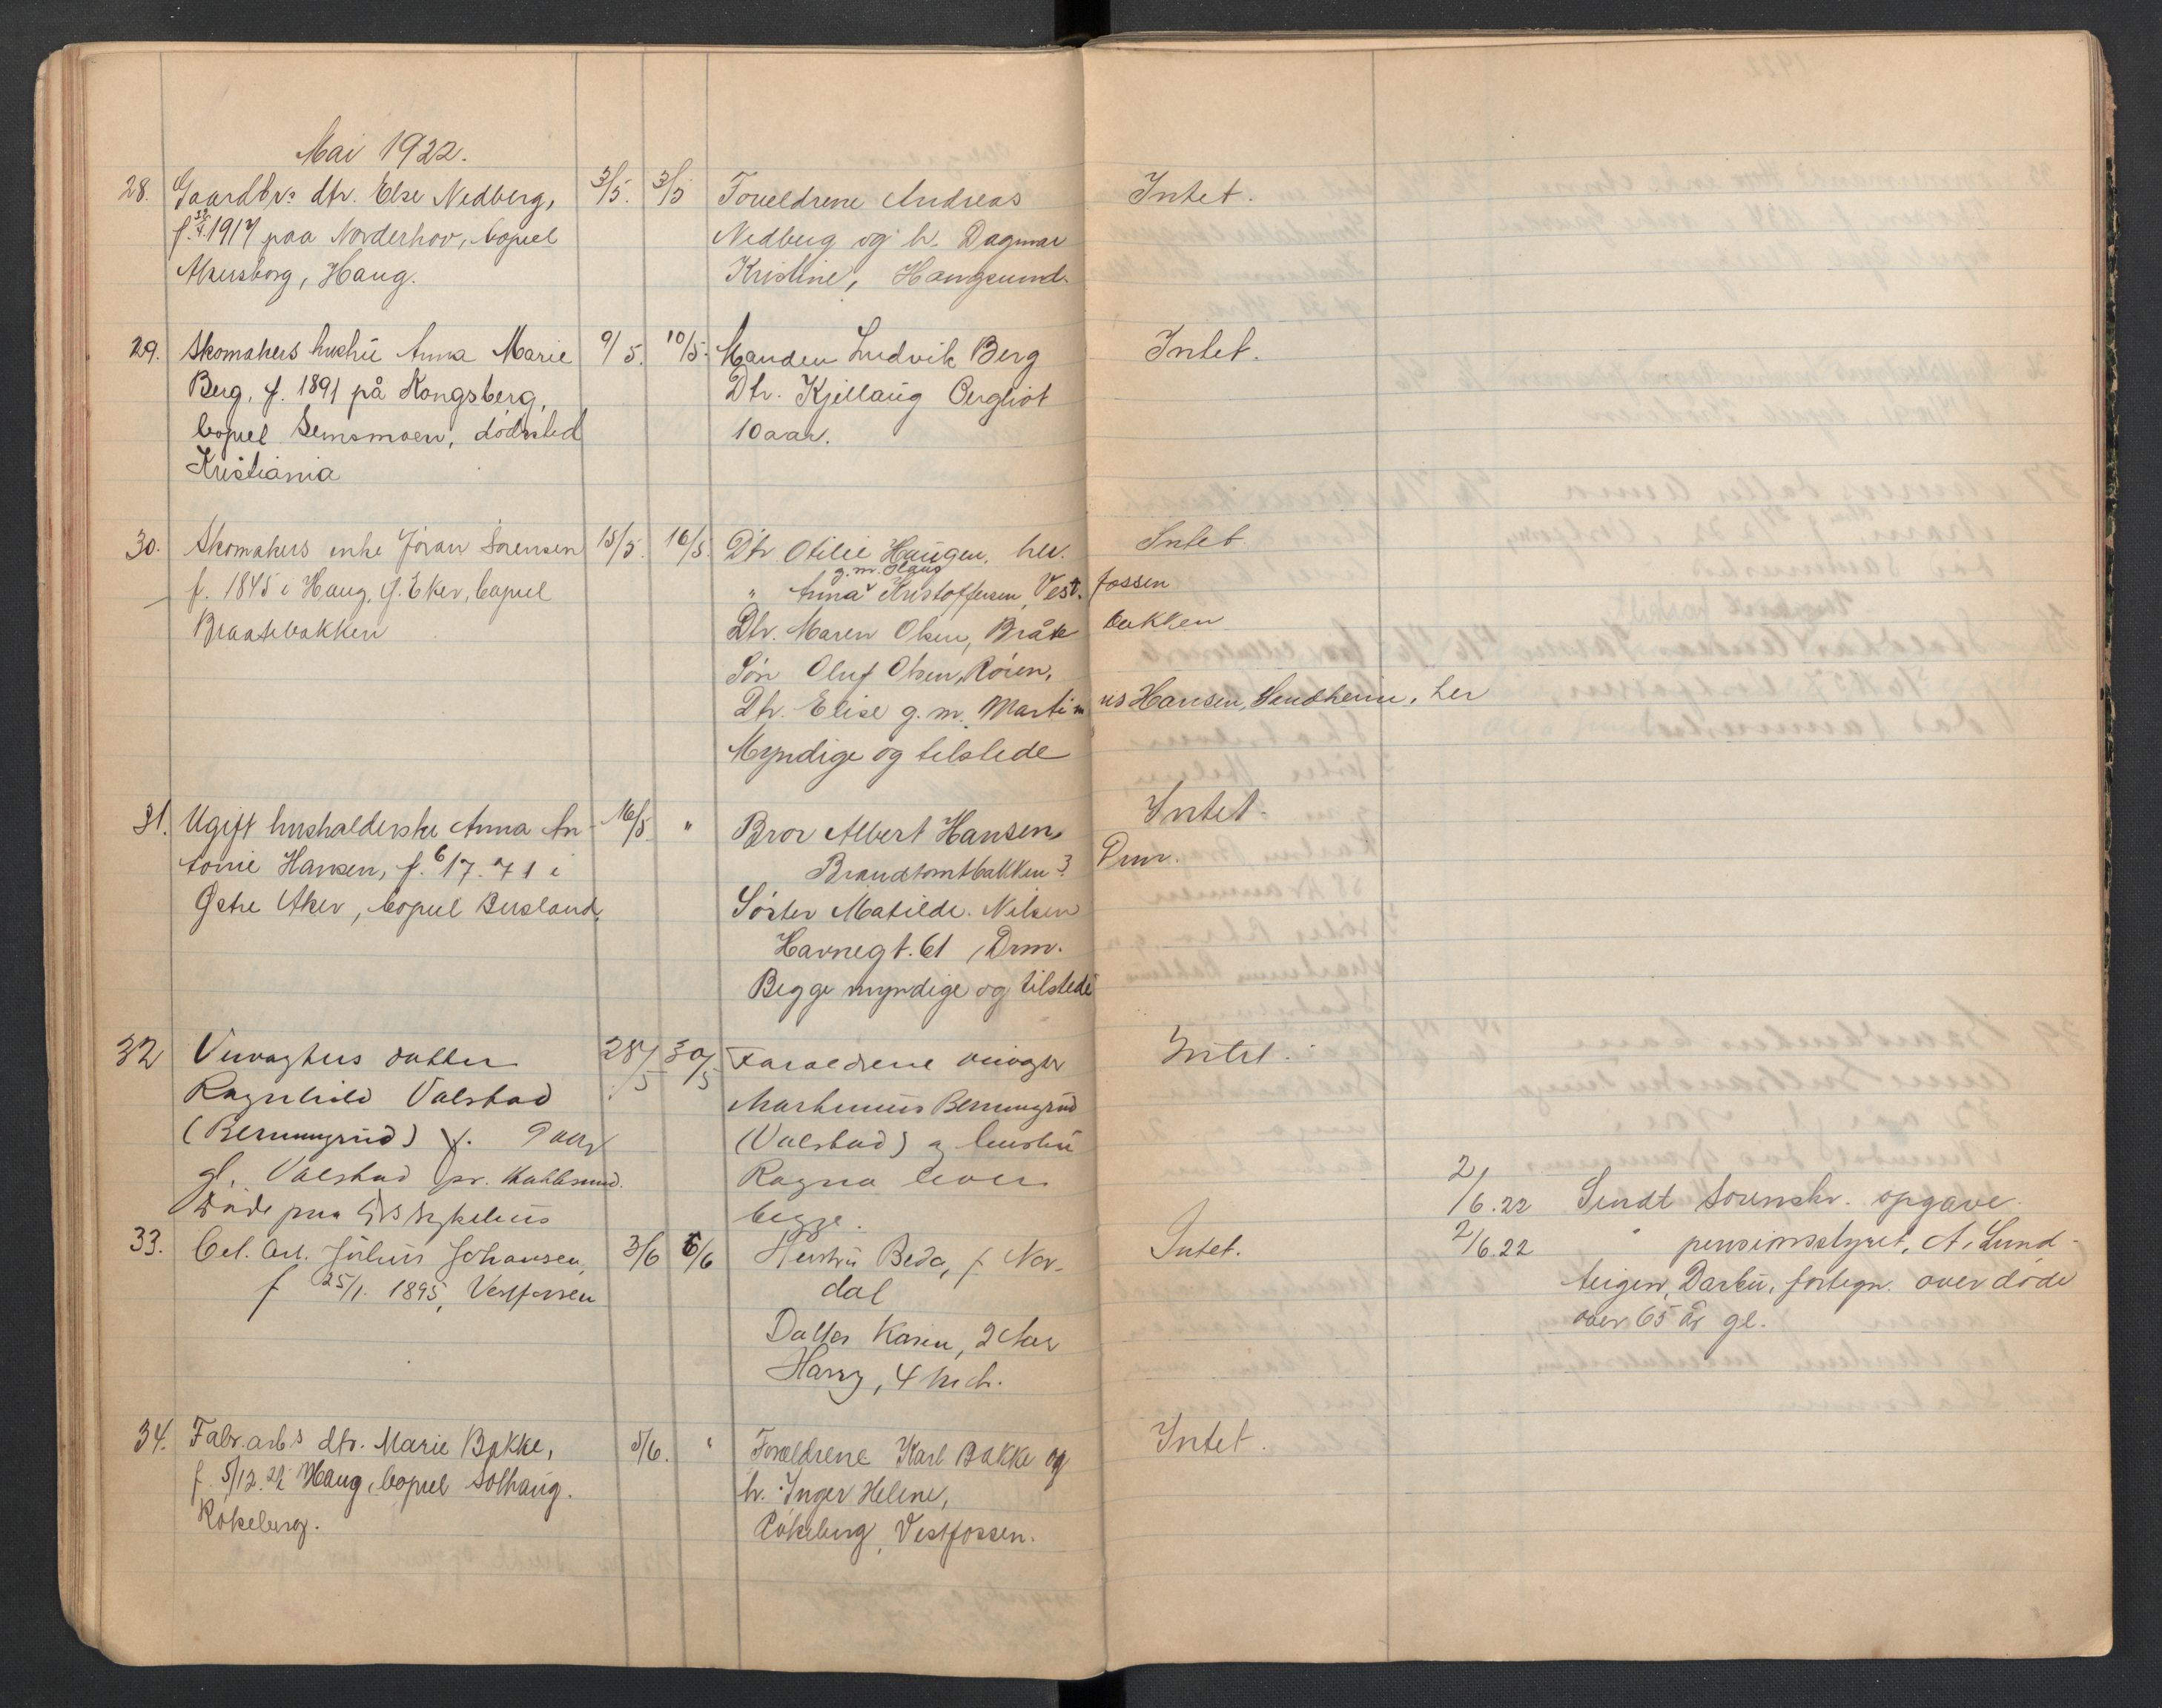 Mai 1922.
28. Gaardbr.s dtr. Else Nedberg, 3/5. 3/5 Foreldrene Andreas Intet.
f. 1917 paa Norderhov, bopæl Nedberg og h. Dagmar
Akersborg, Haug. Kristine, Haugsund.
29. Skomakers hustru Anna Marie 9/5. 10/5. Manden Ludvik Berg Intet.
Berg, f. 1891 på Kongsberg, Dtr. Kjellaug Bergliot
bopæl Semsmoen, dödssted 10 aar.
Kristiania
30. Skomakers enke Jöran Sörensen 15/5. 16/5. Dtr Otilie Haugen, her. Intet
g.m. Olaus
f. 1845 i Haug, Ø. Eker, bopæl " Anna Kristoffersen, Vestfossen
Braatebakken Dtr. Maren Olsen, Bråtebakken
Sön Oluf Olsen, Röien,
Dtr. Elise g.m. Martinus Hansen, Sandheim, her
Myndige og tilstede
31. Ugift husholderske Anna An- 16/5 " Bror Albert Hansen, Intet.
tonie Hansen, f. 17.6 71 i Brandtomtbakken 3 Drm.
Østre Aker, bopæl Bersland, Söster Matilde Nilsen
Havnegt. 61, Drm.
Begge myndige og tilstede
32 Veivogters datter 28/5 30/5 Foraeldrene veivogter Intet.
Ragnhild Valstad Marthinius
( ) f. 9 aar (Valstad) og hustru
gl. Valstad pr. Ragna lever
Döde paa sykehus begge.
2/6.22 Sendt Sorenskr. opgave.
33. Cel. Arb. Julius Johansen, 3/6 6/6 Hustru Beda, f. Nor- Intet. 2/6.22 " pensionsstyret, A. Lund-
f 25/1. 1895, Vestfossen dal teigen, Darbu, fortegn. over döde
Datter Karen, 2 Aar over 65 år gl.
Harry, 4 Mdr.
34. Fabr.arb.s dtr. Marie Bakke, 5/6. " Foreldrene Karl Bakke og Intet.
f. 5/12.21 i Haug, bopæl Solhaug. h. Inger Helene,
Rökeberg. Rökeberg, Vestfossen.